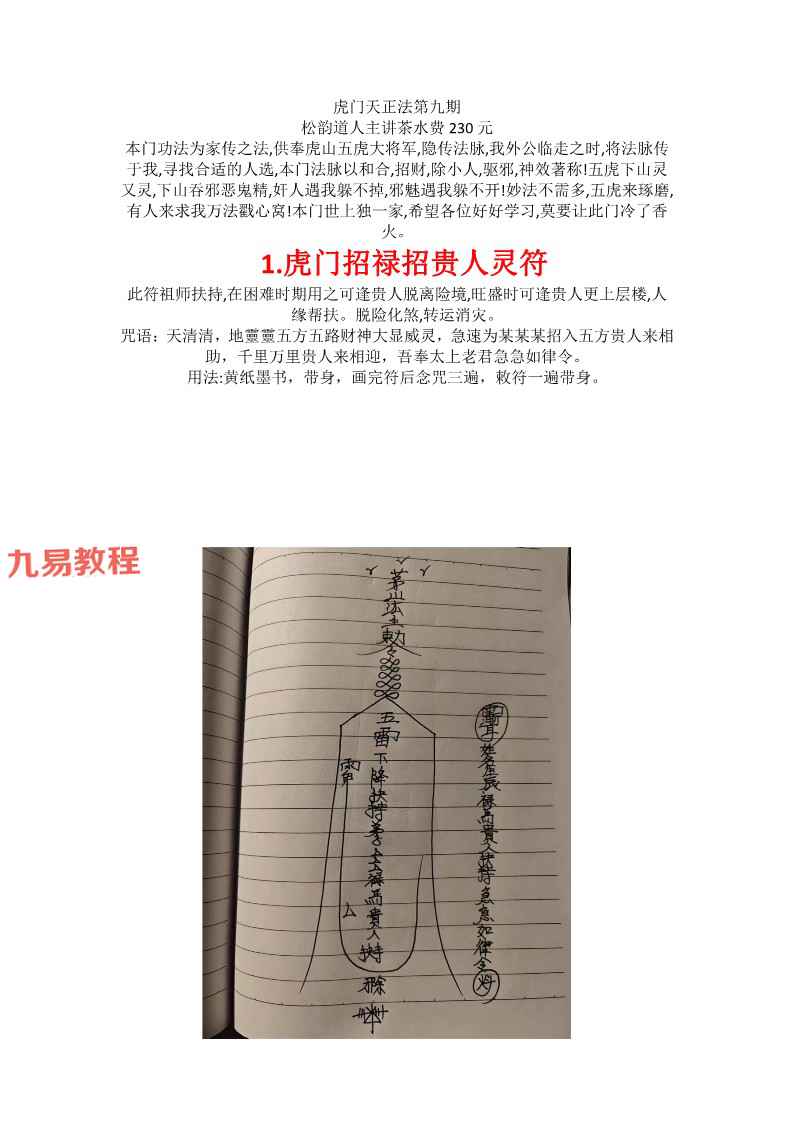 虎门天正法第九期
松韵道人主讲茶水费 230 元
本门功法为家传之法,供奉虎山五虎大将军,隐传法脉,我外公临走之时,将法脉传
于我,寻找合适的人选,本门法脉以和合,招财,除小人,驱邪,神效著称!五虎下山灵
又灵,下山吞邪恶鬼精,奸人遇我躲不掉,邪魅遇我躲不开!妙法不需多,五虎来琢磨,
有人来求我万法戳心窝!本门世上独一家,希望各位好好学习,莫要让此门冷了香
火。
1.虎门招禄招贵人灵符
此符祖师扶持,在困难时期用之可逢贵人脱离险境,旺盛时可逢贵人更上层楼,人
缘帮扶。脱险化煞,转运消灾。
咒语：天清清，地靈靈五方五路财神大显威灵，急速为某某某招入五方贵人来相
助，千里万里贵人来相迎，吾奉太上老君急急如律令。
用法:黄纸墨书，带身，画完符后念咒三遍，敕符一遍带身。
九易教程
茅山法主敕令
五雷下降扶持弟子
禄馬貴人
姓名生辰禄馬貴人扶持急急如律令